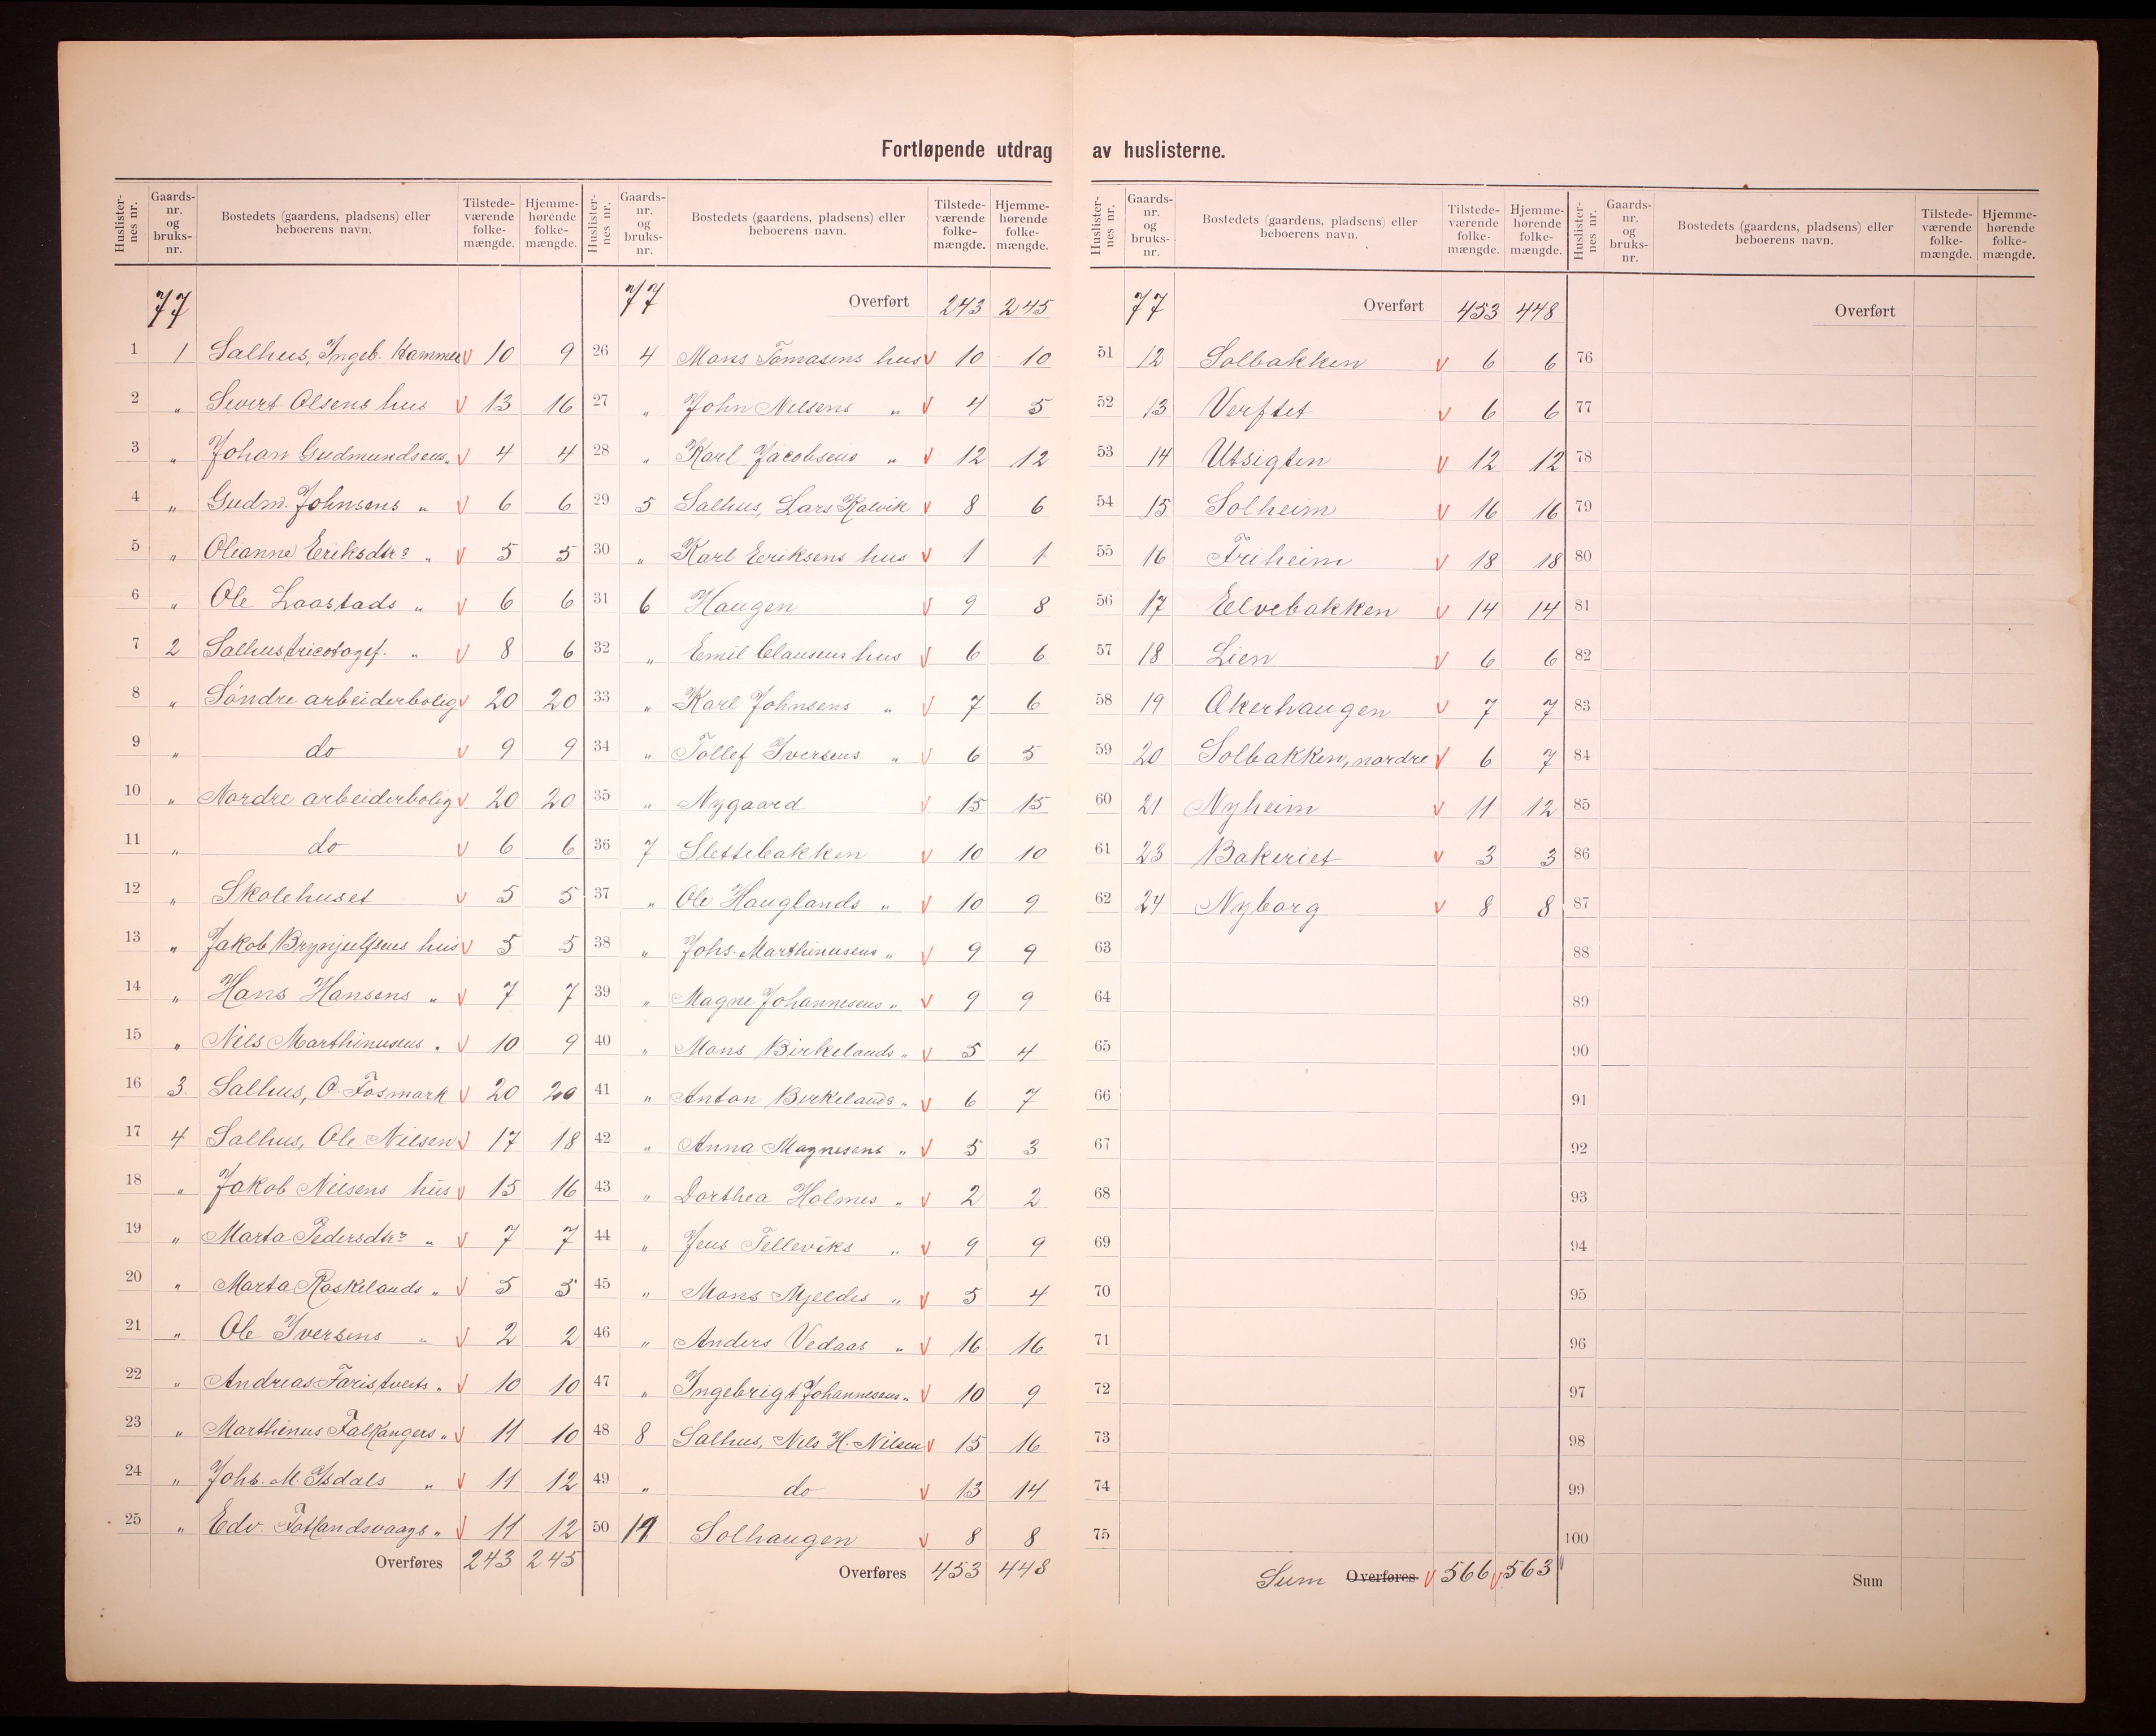 Fortløpende utdrag av huslisterne.
Huslisternes nr. Gaards-nr. og bruks-nr. Bostedets (gaardens, pladsens) eller beboerens navn. Tilstede-værende folke-mængde. Hjemme-hørende folke-mængde.
77
1 1 Salhus, Ingeb. Hammer V 10 9
2 " Sivert Olsens hus V 13 16
3 " Johan Gudmundsens " V 4 4
4 " Gudm. Johnsens " V 6 6
5 " Olianne Eriksdtrs " V 5 5
6 " Ole Laastads " V 6 6
7 2 Salhus tricotagef. " V 8 6
8 " Söndre arbeiderbolig V 20 20
9 " do V 9 9
10 " Nordre arbeiderbolig V 20 20
11 " do V 6 6
12 " Skolehuset V 5 5
13 " Jakob Brynjulfsens hus V 5 5
14 " Hans Hansens " V 7 7
15 " Nils Marthinusens " V 10 9
16 3 Salhus, O. Fosmark V 20 20
17 4 Salhus, Ole Nilsen V 17 18
18 " Jakob Nilsens hus V 15 16
19 " Marta Pedersdtrs " V 7 7
20 " Marta Roskelands " V 5 5
21 " Ole Iversens " V 2 2
22 " Andreas Faristveits " V 10 10
23 " Marthinus Falkangers " V 11 10
24 " Johs. M. Isdals " V 11 12
25 " Edv. Totlandsvaags " V 11 12
Overføres 243 245
Huslisternes nr. Gaards-nr. og bruks-nr. Bostedets (gaardens, pladsens) eller beboerens navn. Tilstede-værende folke-mængde. Hjemme-hørende folke-mængde.
77 Overført 243 245
26 4 Mons Tomasens hus V 10 10
27 " John Nilsens " V 4 5
28 " Karl Jacobsens " V 12 12
29 5 Salhus, Lars Kalvik V 8 6
30 " Karl Eeriksens hus V 1 1
31 6 Haugen V 9 8
32 " Emil Clausens hus V 6 6
33 " Karl Johnsens " V 7 6
34 " Tollef Iversens " V 6 5
35 " Nygaard V 15 15
36 7 Slettebakken V 10 10
37 " Ole Hauglands " V 10 9
38 " Johs. Marthinusens " V 9 9
39 " Magne Johannesens " V 9 9
40 " Mons Birkelands " V 5 4
41 " Anton Birkelands " V 6 7
42 " Anna Magnesens " V 5 3
43 " Dorthea Holmes " V 2 2
44 " Jens Telleviks " V 9 9
45 " Mons Mjeldes " V 5 4
46 " Anders Vedaas " V 16 16
47 " Ingebrigt Johannesens " V 10 9
48 8 Salhus, Nils H. Nilsen V 15 16
49 " do V 13 14
50 11 Solhaugen V 8 8
Overføres 453 448
Huslisternes nr. Gaards-nr. og bruks-nr. Bostedets (gaardens, pladsens) eller beboerens navn. Tilstede-værende folke-mængde. Hjemme-hørende folke-mængde.
77 Overført 453 448
51 12 Solbakken V 6 6
52 13 Verftet V 6 6
53 14 Utsigten V 12 12
54 15 Solheim V 16 16
55 16 Friheim V 18 18
56 17 Eelvebakken V 14 14
57 18 Lien V 6 6
58 19 Akerhaugen V 7 7
59 20 Solbakken, nordre V 6 7
60 21 Nyheim V 11 12
61 23 Bakeriet V 3 3
62 24 Nyborg V 8 8
63
64
65
66
67
68
69
70
71
72
73
74
75
Sum Overføres V 566 V 563
Huslisternes nr. Gaards-nr. og bruks-nr. Bostedets (gaardens, pladsens) eller beboerens navn. Tilstede-værende folke-mængde. Hjemme-hørende folke-mængde.
Overført
76
77
78
79
80
81
82
83
84
85
86
87
88
89
90
91
92
93
94
95
96
97
98
99
100
Sum